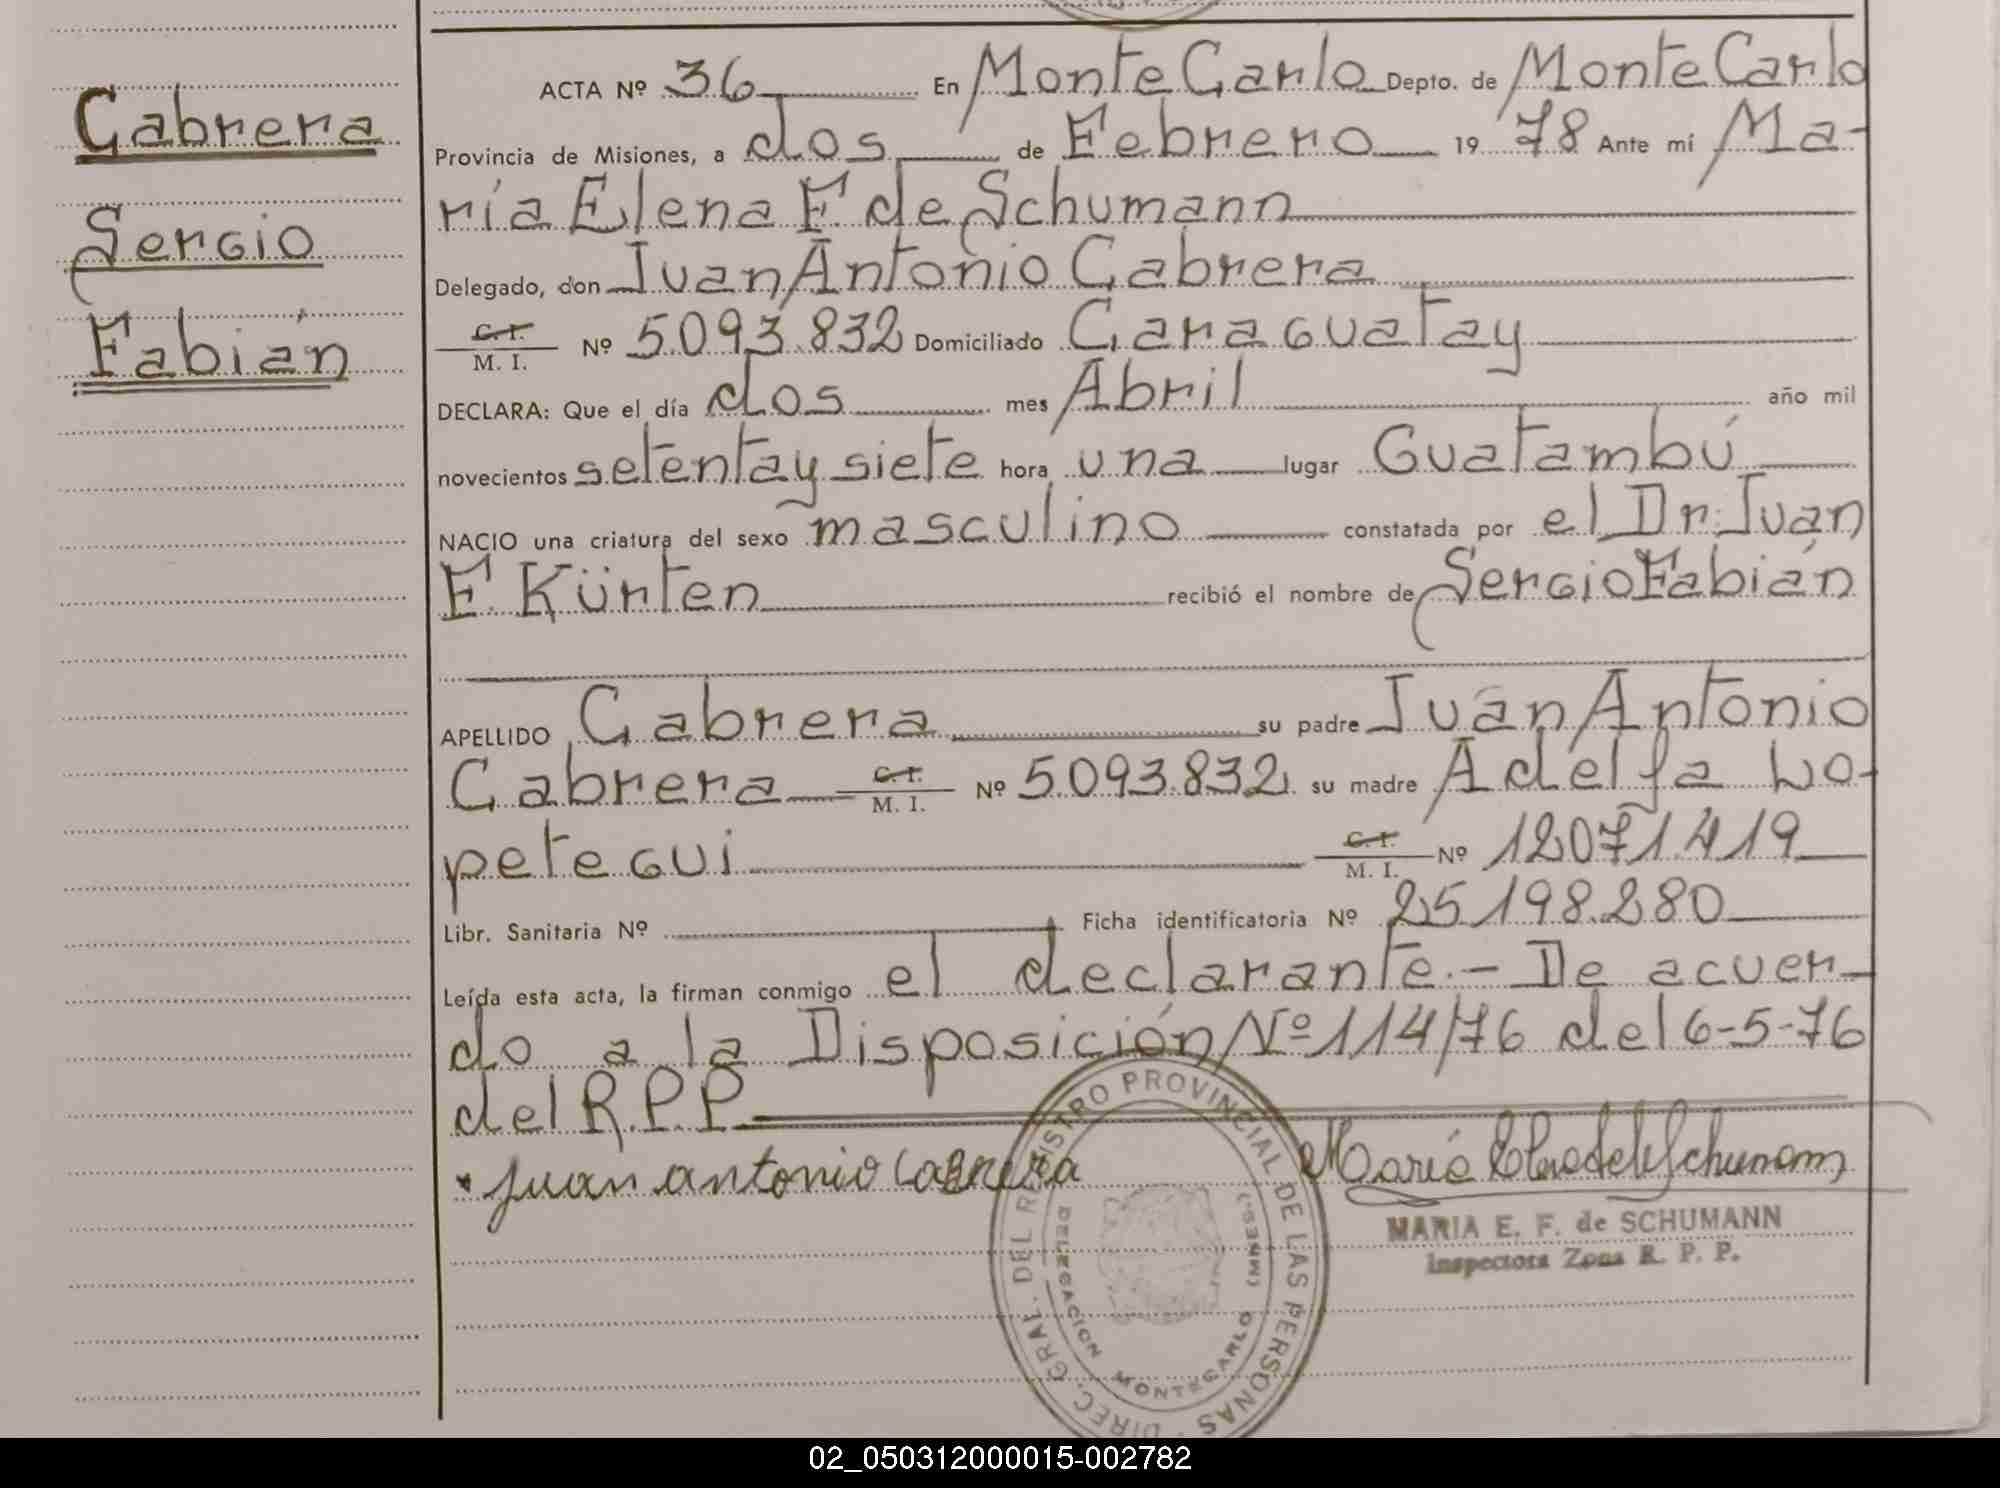 Cabrera
Sergio
Fabián
ACTA Nº 36 En MonteCarlo Depto. de MonteCarlo
Provincia de Misiones, a dos de Febrero 19 78 Ante mí Ma-
ría Elena F. de Schumann
Delegado, don Juan Antonio Cabrera
C. I.
M. I. Nº 5.093.832 Domiciliado Caraguatay
DECLARA: Que el día dos mes Abril año mil
novecientos setenta y siete hora una lugar Guatambú
NACIO una criatura del sexo masculino constatada por el Dr. Juan
F. Kürten recibió el nombre de Sergio Fabián
APELLIDO Cabrera su padre Juan Antonio
Cabrera C. I.
M. I. Nº 5.093.832 su madre Adelfa Lo-
petegui C. I.
M. I. Nº 12.071.419
Libr. Sanitaria Nº Ficha identificatoria Nº 25.198.280
Leída esta acta, la firman conmigo el declarante.- De acuer-
do a la Disposición Nº 114/76 del 6-5-76
del R.P.P.
Juan Antonio Cabrera
María Elena F de Schumann
MARIA E. F. de SCHUMANN
Inspectora Zona R. P. P.
DIREC. GRAL. DEL REGISTRO PROVINCIAL DE LAS PERSONAS
DELEGACION MONTECARLO (MNES.)
02_050312000015-002782